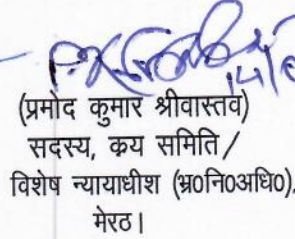 (प्रमोद कुमार श्रीवास्तव)
सदस्य, क्रय समिति /
विशेष न्यायाधीश (भ्र०नि०अधि०),
मेरठ।